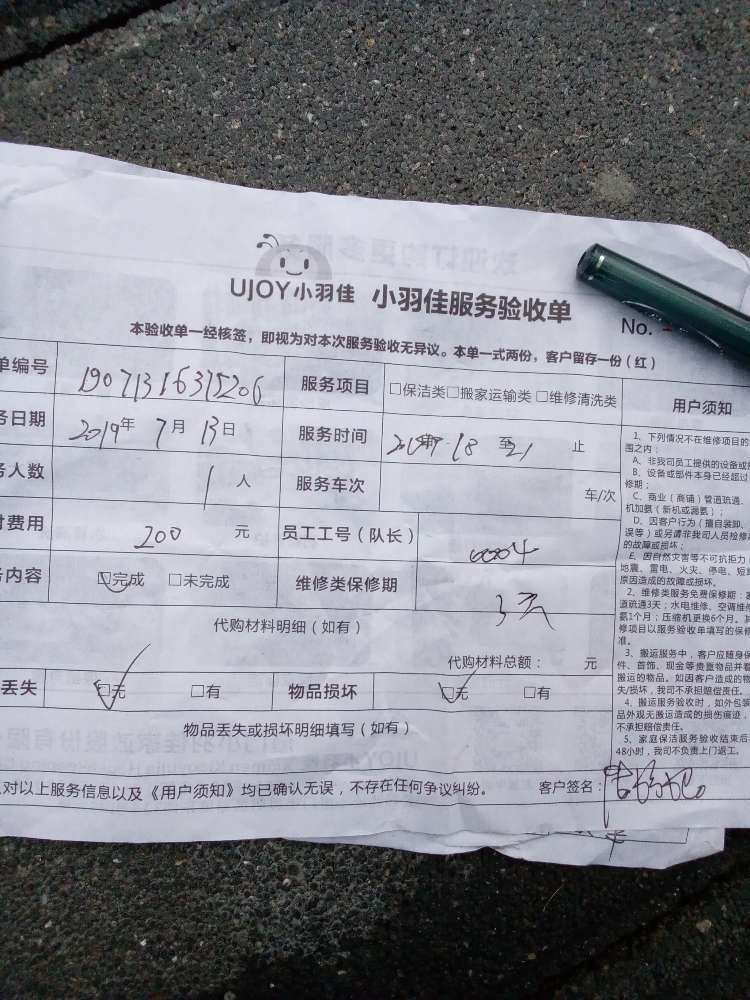 UJOY小羽佳 小羽佳服务验收单
No.
本验收单一经核签，即视为对本次服务验收无异议。本单一式两份，客户留存一份（红）
单编号 19071316315206 服务项目 □保洁类□搬家运输类□维修清洗类
务日期 2019年 7月 13日 服务时间 至21 止
务人数 1人 服务车次 车/次
付费用 200 元 员工工号（队长） 0004
务内容 □完成 □未完成 维修类保修期 3天
代购材料明细（如有）
代购材料总额： 元
丢失 □无 □有 物品损坏 □无 □有
物品丢失或损坏明细填写（如有）
对以上服务信息以及《用户须知》均已确认无误，不存在任何争议纠纷。 客户签名：
用户须知
1、下列情况不在维修项目的
围之内：
A、非我司员工提供的设备或
B、设备或部件本身已经超过
修期；
C、商业（商铺）管道疏通、
机加氨（新机或漏氨）；
D、因客户行为（擅自装卸、
误等）或另请非我司人员检修
的故障或损坏；
E、因自然灾害等不可抗力（
地震、雷电、火灾、停电、短
原因造成的故障或损坏。
2、维修类服务免费保修期：
道疏通3天；水电维修、空调维
氨1个月；压缩机更换6个月。其
修项目以服务验收单填写的保修
准。
3、搬运服务中，客户应随身保
件、首饰、现金等贵重物品并看
搬运的物品。如因客户造成的物
失/损坏，我司不承担赔偿责任。
4、搬运服务验收时，如外包装
品外观无搬运造成的损伤痕迹，
不承担赔偿责任。
5、家庭保洁服务验收结束后
48小时，我司不负责上门返工。